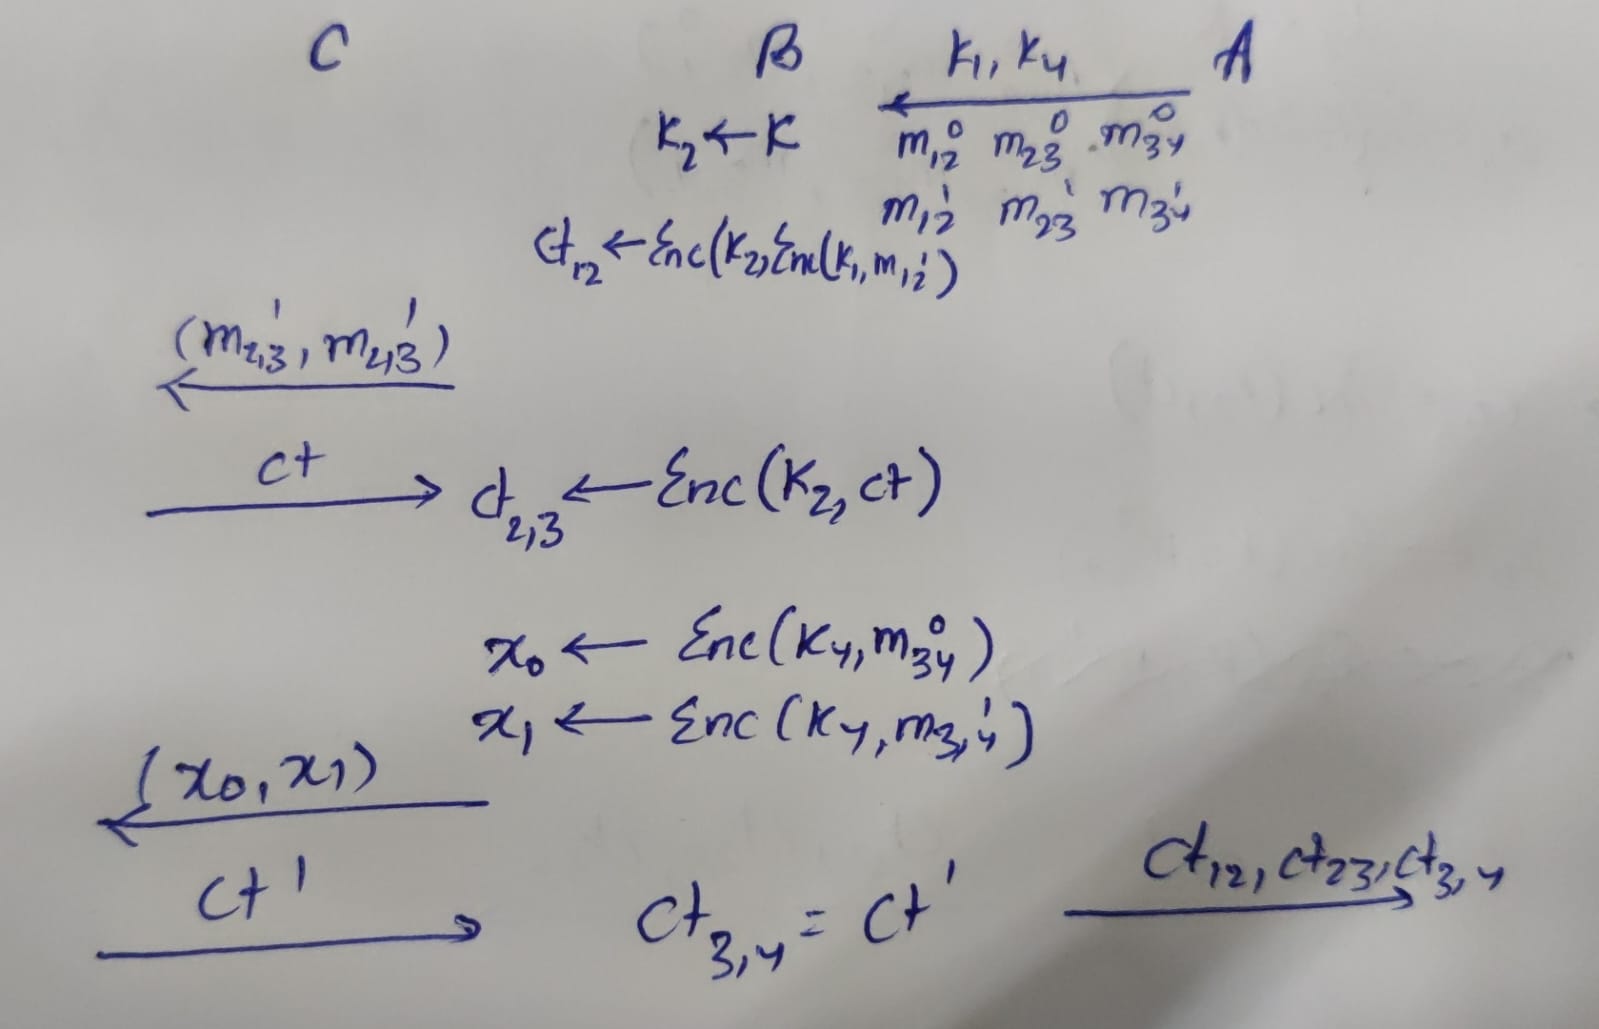 C B k₁, k₄ A
k₂ ← K m₁₂⁰ m₂₃⁰ m₃₄⁰
m₁₂¹ m₂₃¹ m₃₄¹
ct₁₂ ← Enc(k₂, Enc(k₁, m₁₂¹)
(m₂,₃¹, m₂,₃¹)
ct
ct₂,₃ ← Enc(k₂, ct)
x₀ ← Enc(k₄, m₃₄⁰)
x₁ ← Enc(k₄, m₃,₄¹)
(x₀, x₁)
ct' ct₃,₄ = ct' ct₁₂, ct₂₃, ct₃,₄